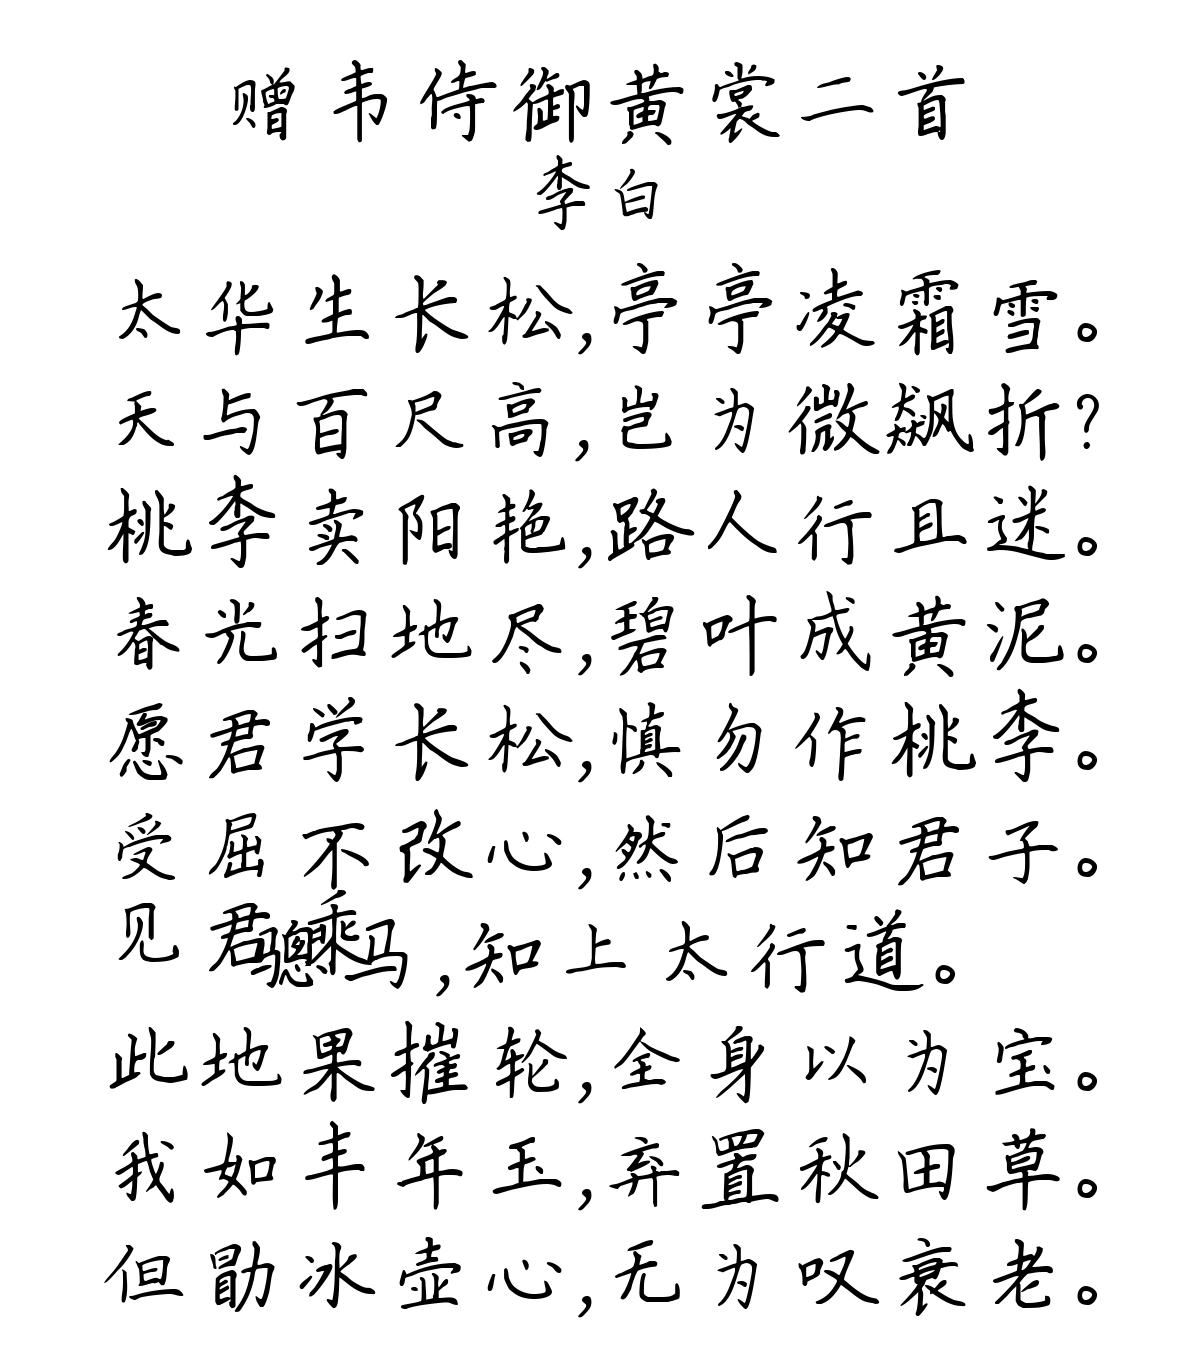 赠韦侍御黄裳二首
李白
太华生长松,亭亭凌霜雪。
天与百尺高,岂为微飙折?
桃李卖阳艳,路人行且迷。
春光扫地尽,碧叶成黄泥。
愿君学长松,慎勿作桃李。
受屈不改心,然后知君子。
见君乘骢马,知上太行道。
此地果摧轮,全身以为宝。
我如丰年玉,弃置秋田草。
但勖冰壶心,无为叹衰老。